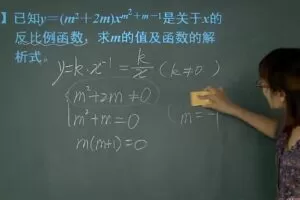 】已知y=(m²+2m)x^{m²+m-1}是关于x的
反比例函数，求m的值及函数的解
析式。
y=k·x⁻¹=k/x (k≠0)
{m²+2m≠0
m²+m=0 (m=-1
m(m+1)=0